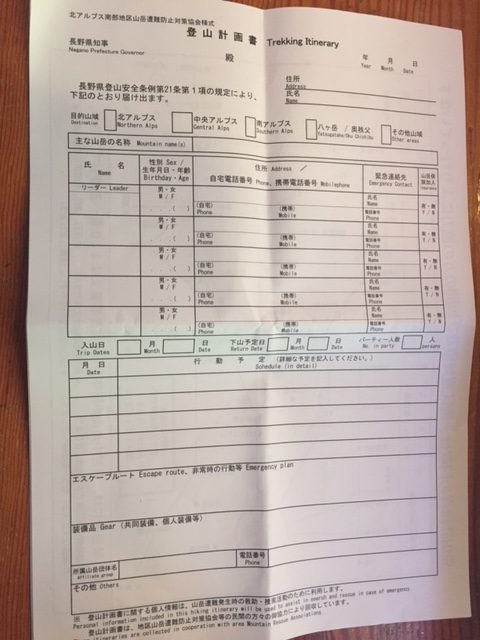 北アルプス南部地区山岳遭難防止対策協会様式
登山計画書 Trekking Itinerary
長野県知事 殿
Nagano Prefecture Governor
年 月 日
Year Month Date
住所
Address
氏名
Name
長野県登山安全条例第21条第1項の規定により、
下記のとおり届け出ます。
目的山域 北アルプス 中央アルプス 南アルプス 八ヶ岳 / 奥秩父 その他山域
Destination Northern Alps Central Alps Southern Alps Yatsugatake/Oku Chichibu Other areas
主な山岳の名称 Mountain name(s)
氏 名
Name
性別 Sex /
生年月日・年齢
Birthday・Age
住所 Address /
自宅電話番号 Phone, 携帯電話番号 Mobilephone
緊急連絡先
Emergency Contact
山岳保
険加入
Insurance
リーダー Leader
男・女
M / F
. . ( )
(自宅) (携帯)
Phone Mobile
氏名
Name
電話番号
Phone
有・無
Y / N
男・女
M / F
. . ( )
(自宅) (携帯)
Phone Mobile
氏名
Name
電話番号
Phone
有・無
Y / N
男・女
M / F
. . ( )
(自宅) (携帯)
Phone Mobile
氏名
Name
電話番号
Phone
有・無
Y / N
男・女
M / F
. . ( )
(自宅) (携帯)
Phone Mobile
氏名
Name
電話番号
Phone
有・無
Y / N
男・女
M / F
. . ( )
(自宅) (携帯)
Phone Mobile
氏名
Name
電話番号
Phone
有・無
Y / N
入山日 月 日 下山予定日 月 日 パーティー人数 人
Trip Dates Month Date Return Date Month Date No. in party persons
月 日
Date
行 動 予 定 (詳細な予定を記入してください。)
Schedule (in detail)
エスケープルート Escape route、非常時の行動等 Emergency plan
装備品 Gear (共同装備、個人装備等)
所属山岳団体名
affiliate group
電話番号
Phone
その他 Others
※ 登山計画書に関する個人情報は、山岳遭難発生時の救助・捜索活動のために利用します。
Personal information included in this hiking itinerary will be used to assist in search and rescue in case of emergency.
登山計画書は、地区山岳遭難防止対策協会等の民間の方々の御協力により回収しています。
itineraries are collected in cooperation with area Mountain Rescue Associations.